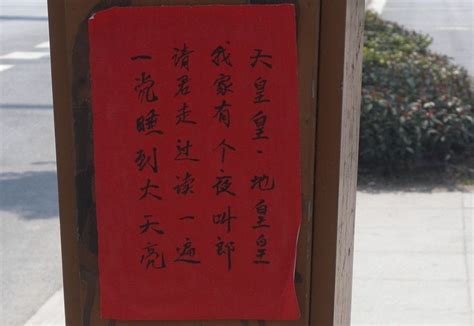 天皇皇·地皇皇
我家有个夜叫郎
请君走过读一遍
一党睡到大天亮